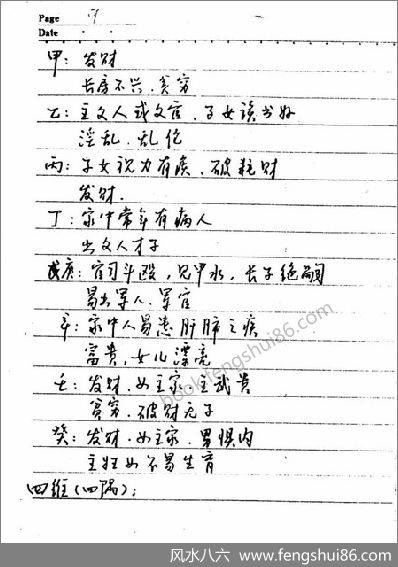 Page 17
Date
甲：发财
长房不兴，贫穷
乙：主文人或文官，子女读书好
淫乱，乱伦
丙：子女视力有疾，破耗财
发财．
丁：家中常年有病人
出文人才子
戊庚：官司斗殴，见甲水，长子绝
易出军人、军官
辛：家中人易患肝肺之疾
富贵，女儿漂亮
壬：发财，女主家，主武贵
贫穷，破财无子
癸：发财，女主家，男惧内
主妇女不易生育
四维（四隅）：
book.fengshui86.com
风水八六 www.fengshui86.com